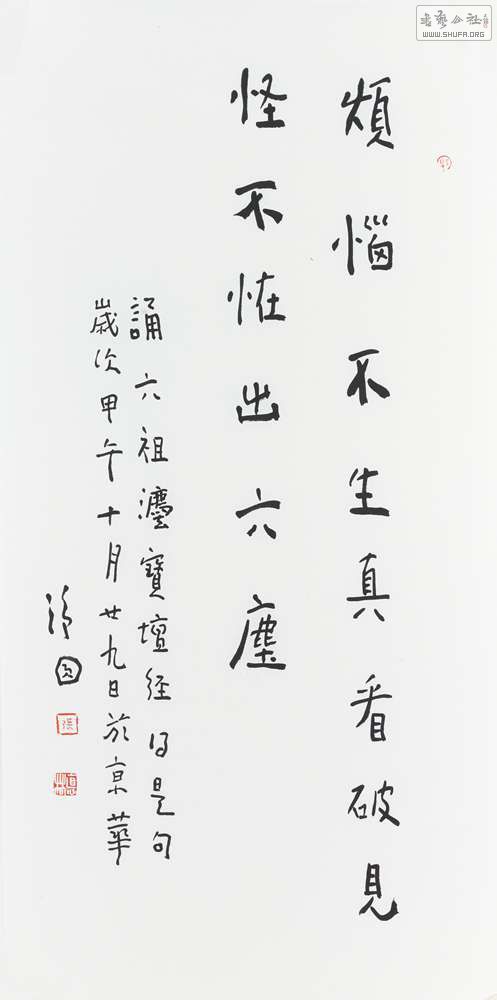 煩惱不生真看破見
怪不怪出六塵
誦六祖灋寶壇经得是句
歲次甲午十月廿九日於京華
書藝公社
WWW.SHUFA.ORG